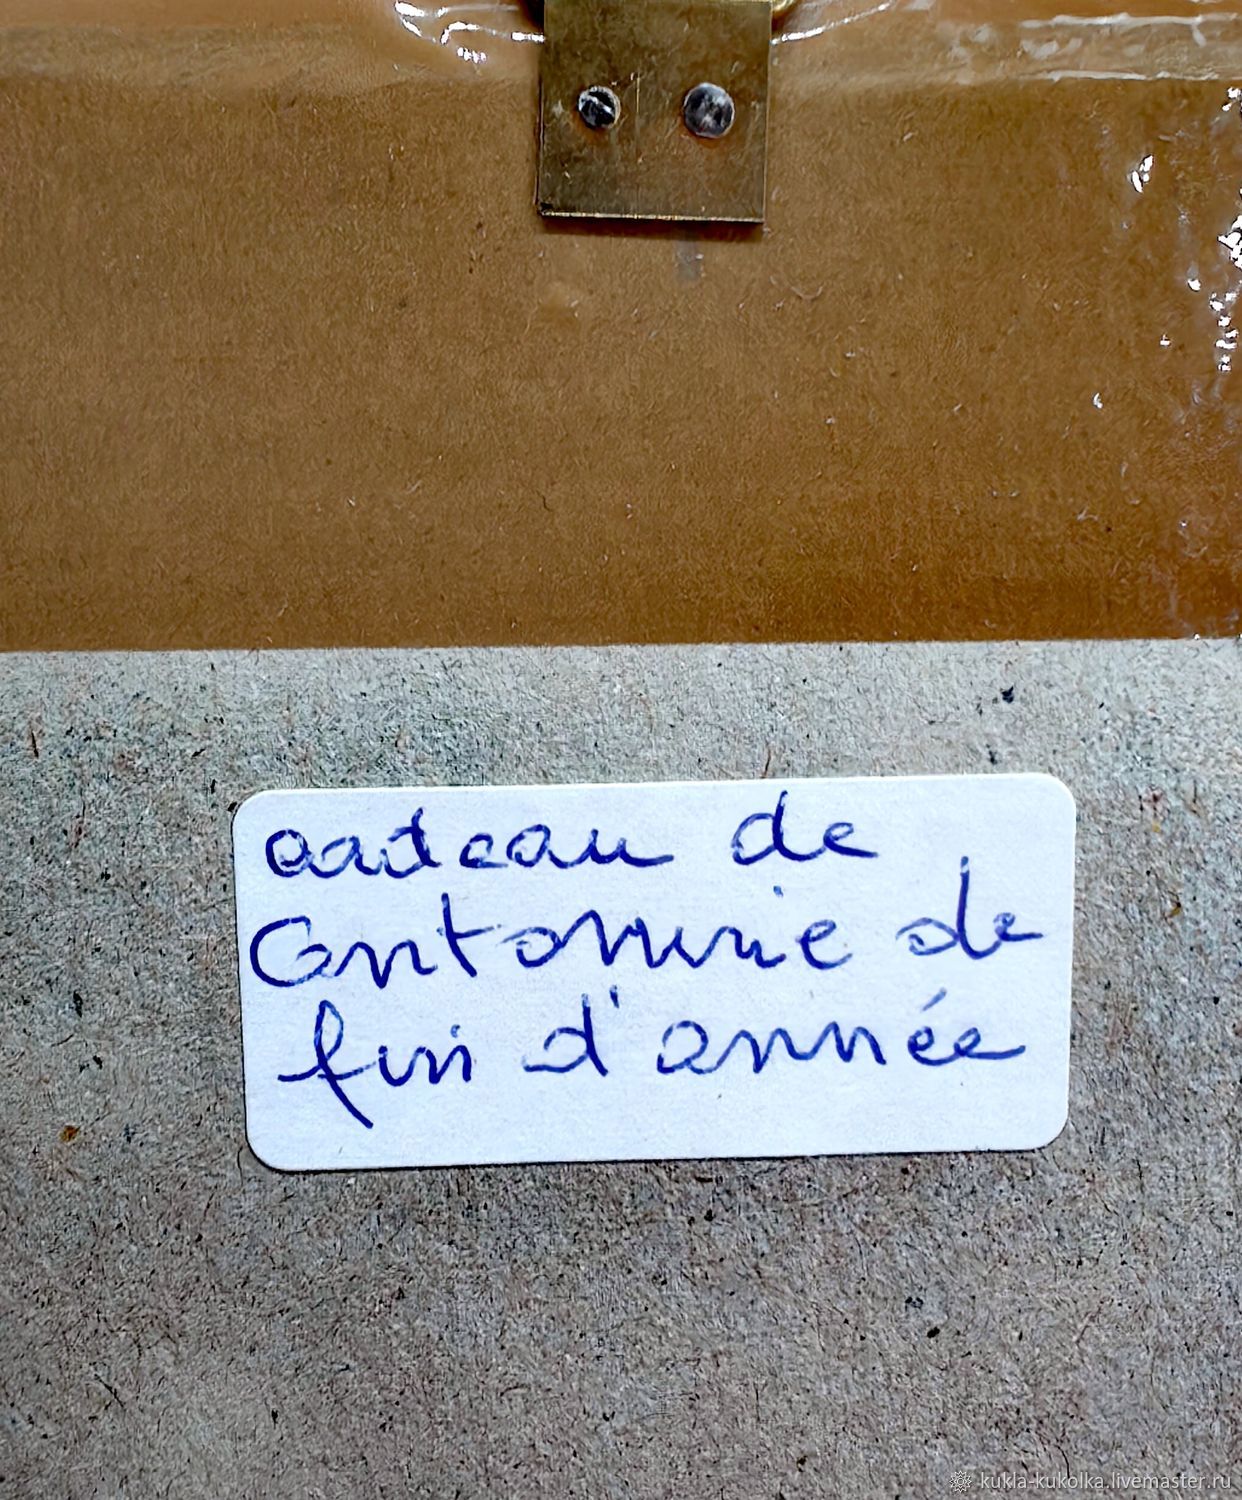 cadeau de
Antonine de
fin d'année
kukla-kukolka.livemaster.ru